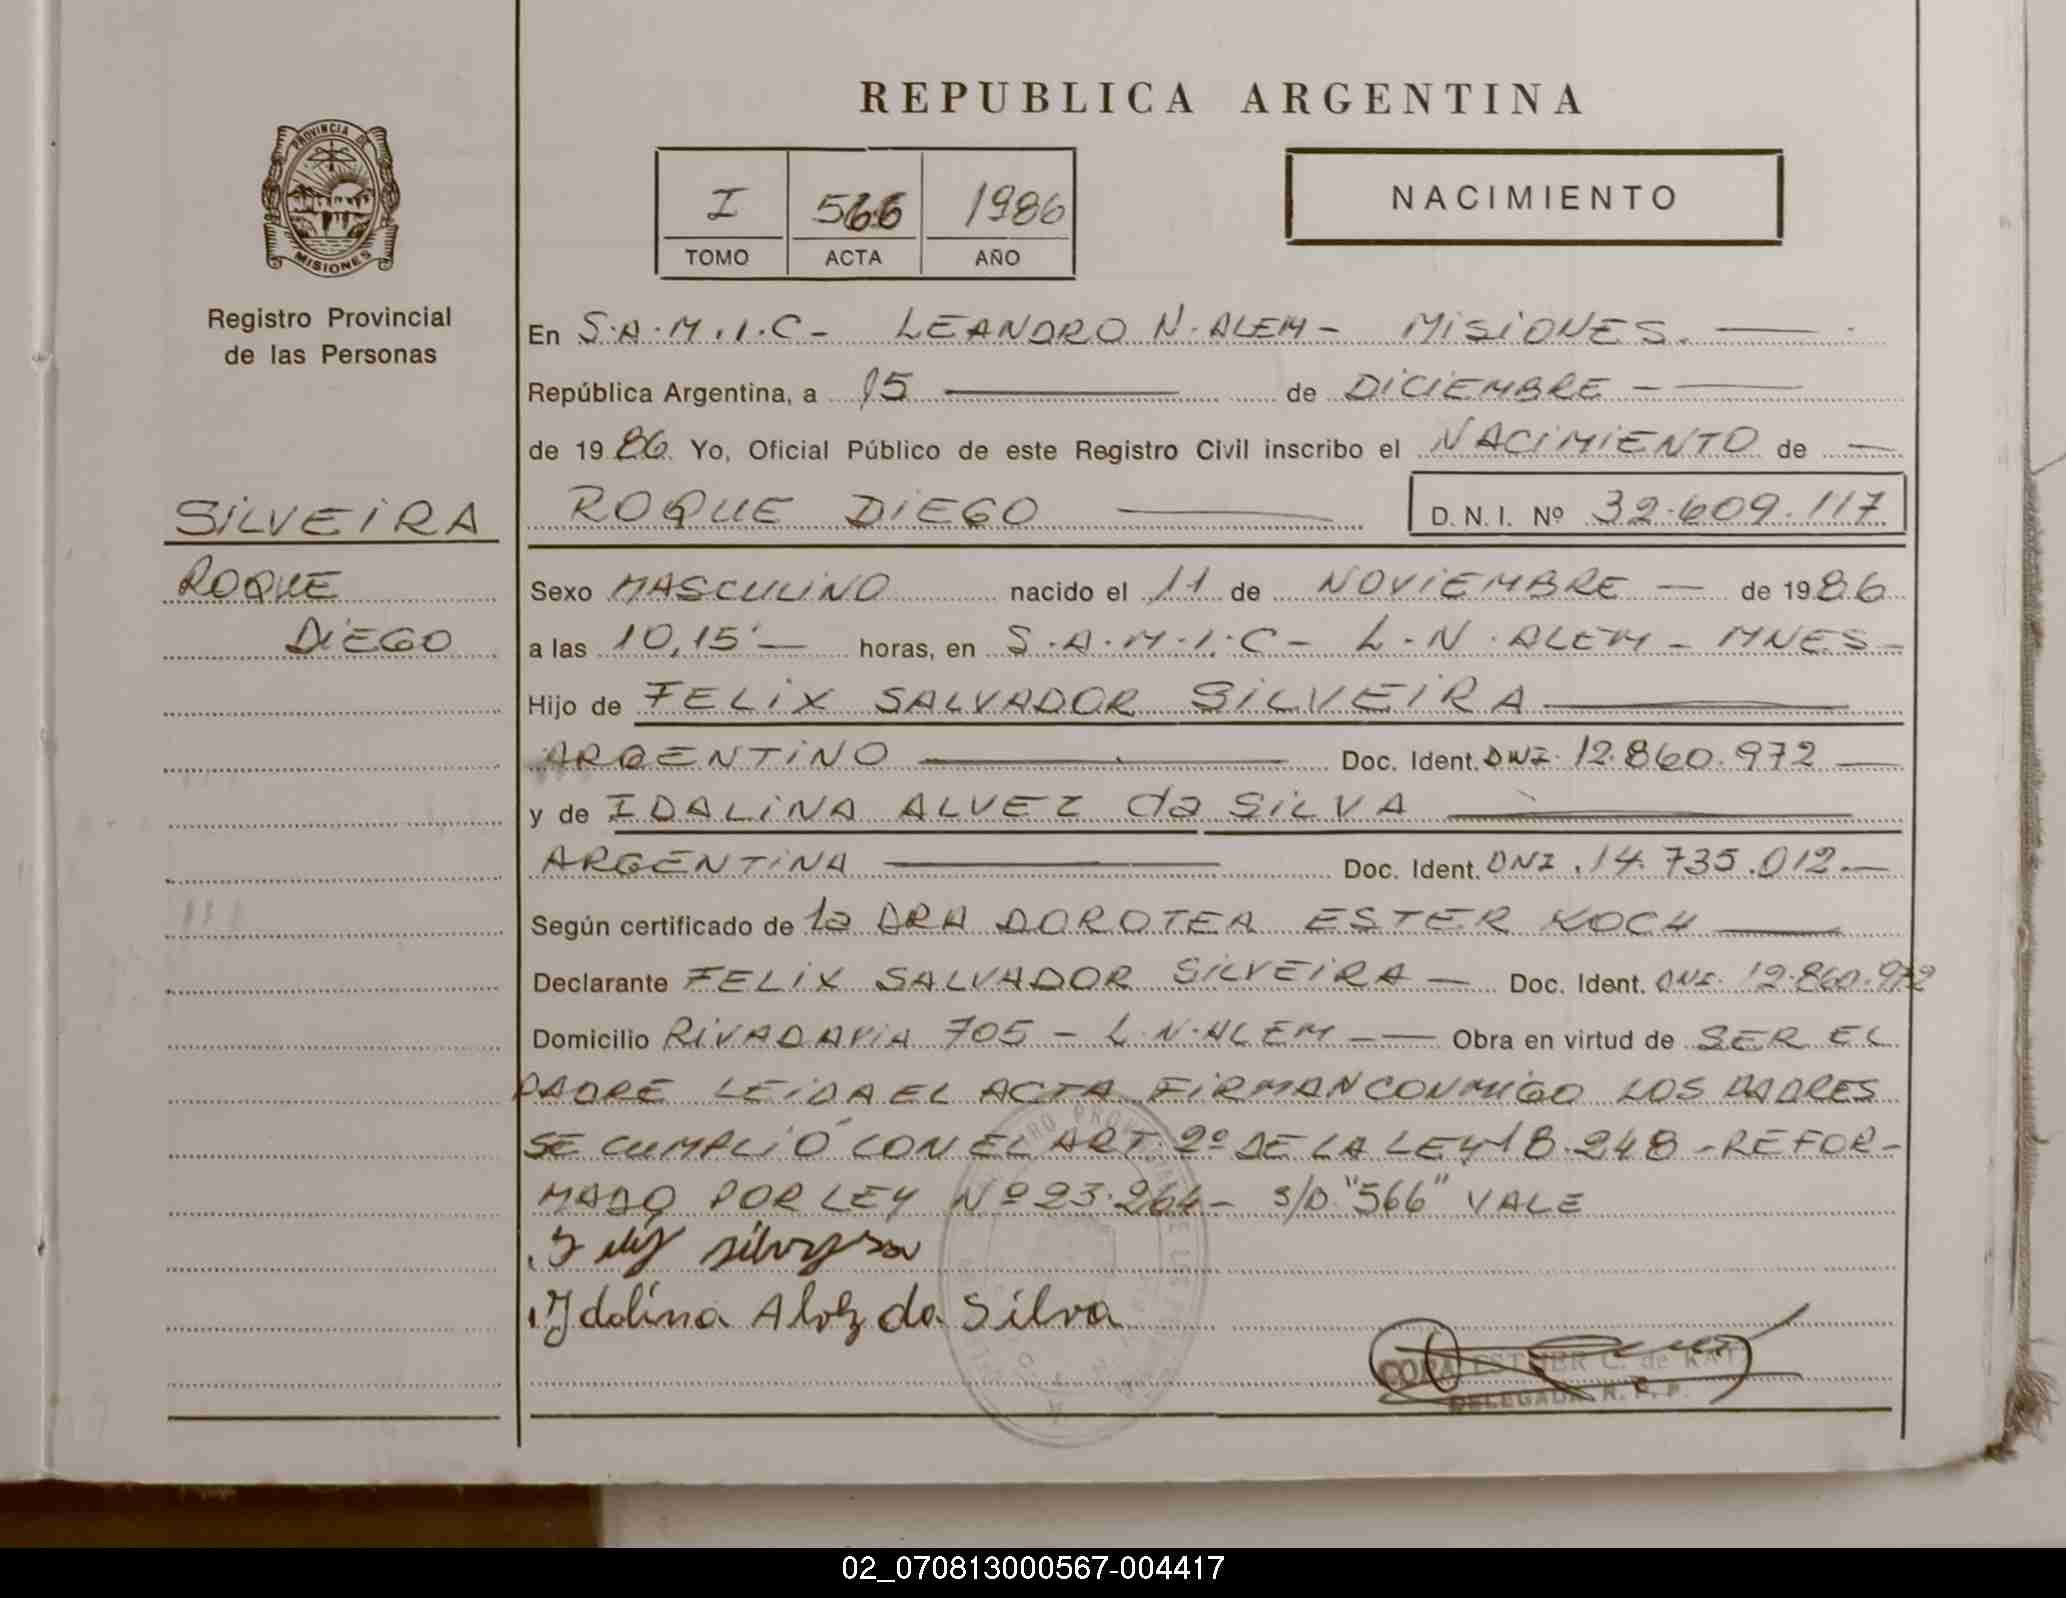 REPUBLICA ARGENTINA
PROVINCIA DE
MISIONES
Registro Provincial
de las Personas
I 566 1986
TOMO ACTA AÑO
NACIMIENTO
En S.A.M.I.C- LEANDRO N. ALEM- MISIONES.
República Argentina, a 15 de DICIEMBRE -
de 1986 Yo, Oficial Público de este Registro Civil inscribo el NACIMIENTO de
SILVEIRA
ROQUE DIEGO D.N.I. Nº 32.609.117
ROQUE
DIEGO
Sexo MASCULINO nacido el 11 de NOVIEMBRE - de 1986
a las 10,15'- horas, en S.A.M.I.C- L.N. ALEM - MNES-
Hijo de FELIX SALVADOR SILVEIRA
ARGENTINO Doc. Ident. DNI. 12.860.972
y de IDALINA ALVEZ da SILVA
ARGENTINA Doc. Ident. DNI. 14.735.012.-
Según certificado de la DRA DOROTEA ESTER KOCH
Declarante FELIX SALVADOR SILVEIRA - Doc. Ident. DNI. 12.860.972
Domicilio RIVADAVIA 705 - L.N.ALEM - Obra en virtud de SER EL
PADRE LEIDA EL ACTA FIRMAN CONMIGO LOS PADRES
SE CUMPLIÓ CON EL ART. 2º DE LA LEY 18.248 - REFOR-
MADO POR LEY Nº 23.264- S/D. "566" VALE
silveira
Idalina Alvez da Silva
ESTHER C. de
DELEGADA R. P. P.
02_070813000567-004417